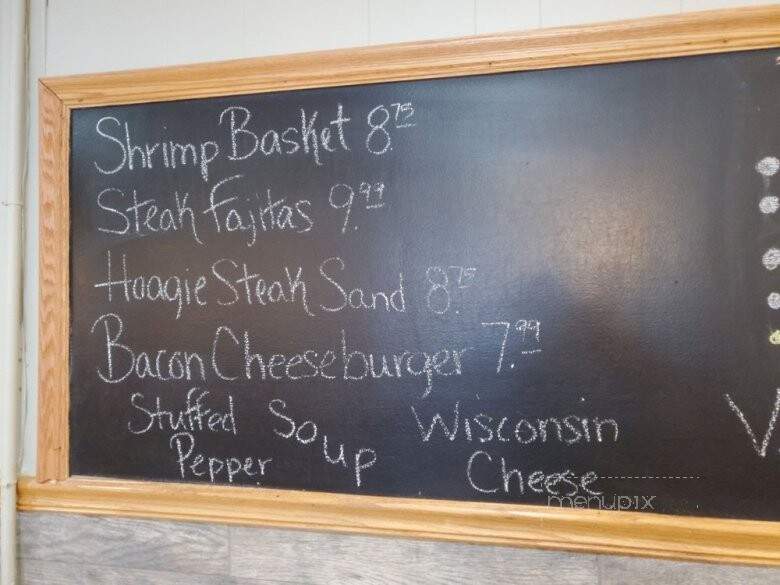 Shrimp Basket 8.75
Steak Fajitas 9.99
Hoagie Steak Sand 8.75
Bacon Cheeseburger 7.99
Stuffed Pepper
Soup
Wisconsin Cheese
menupix